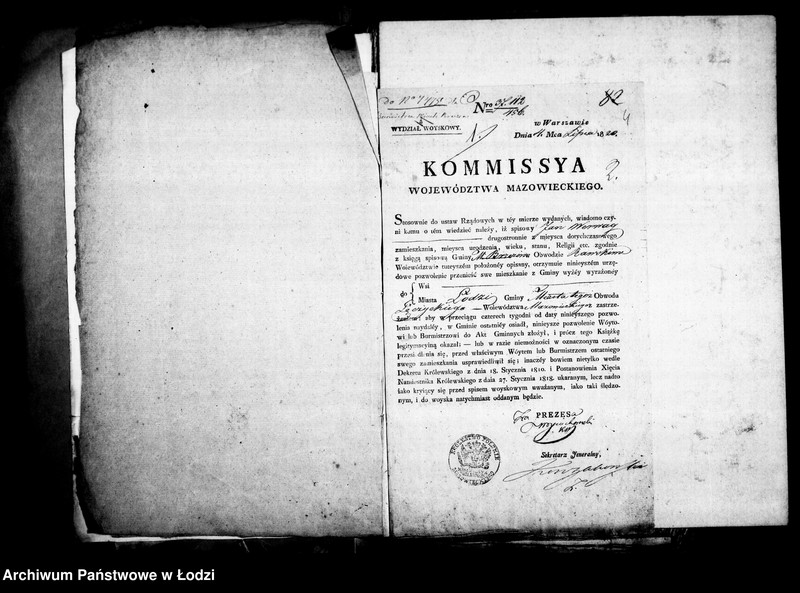 Do Nro
Nro
82
4
WYDZIAŁ WOYSKOWY.
w Warszawie
Dnia Mca Lipca 18
KOMMISSYA
2.
WOJEWÓDZTWA MAZOWIECKIEGO.
Stosownie do ustaw Rządowych w téy mierze wydanych, wiadomo czy-
ni komu o tém wiedzieć należy, iż spisowy Jan
drugostronnie z mieysca dotychczasowego
zamieszkania, mieysca urodzenia, wieku, stanu, Religii etc. zgodnie
z księgą spisową Gminy M. Obwodzie Rawskim
Woiewództwie tuteyszém położonéy opisany, otrzymuie ninieyszém urzę-
dowe pozwolenie przenieść swe mieszkanie z Gminy wyżéy wyrażonéy
do { Wsi
Miasta Łodzi Gminy Miasta tegoż Obwodu
Łęczyckiego Województwa Mazowieckiego zastrze-
żeniem, aby w przeciągu czterech tygodni od daty ninieyszego pozwo-
lenia rozydźćy, w Gminie ostatniéy osiadł, ninieysze pozwolenie Wóyto-
wi lub Burmistrzowi do Akt Gminnych złożył, i prócz tego Książkę
legitymacyiną okazał: — lub w razie niemożności w oznaczonym czasie
przesiedlenia się, przed właściwym Wóytem lub Burmistrzem ostatniego
swego zamieszkania usprawiedliwił się; inaczéy bowiem nietylko wedle
Dekretu Królewskiego z dnia 18. Stycznia 1810. i Postanowienia Xięcia
Namiestnika Królewskiego z dnia 27. Stycznia 1818. ukaranym, lecz nadto
iako kryiący się przed spisem woyskowym uważanym, iako taki śledzo-
nym, i do woyska natychmiast oddanym będzie.
PREZES
Sekretarz Jeneralny,
KRÓLESTWO POLSKIE
Archiwum Państwowe w Łodzi